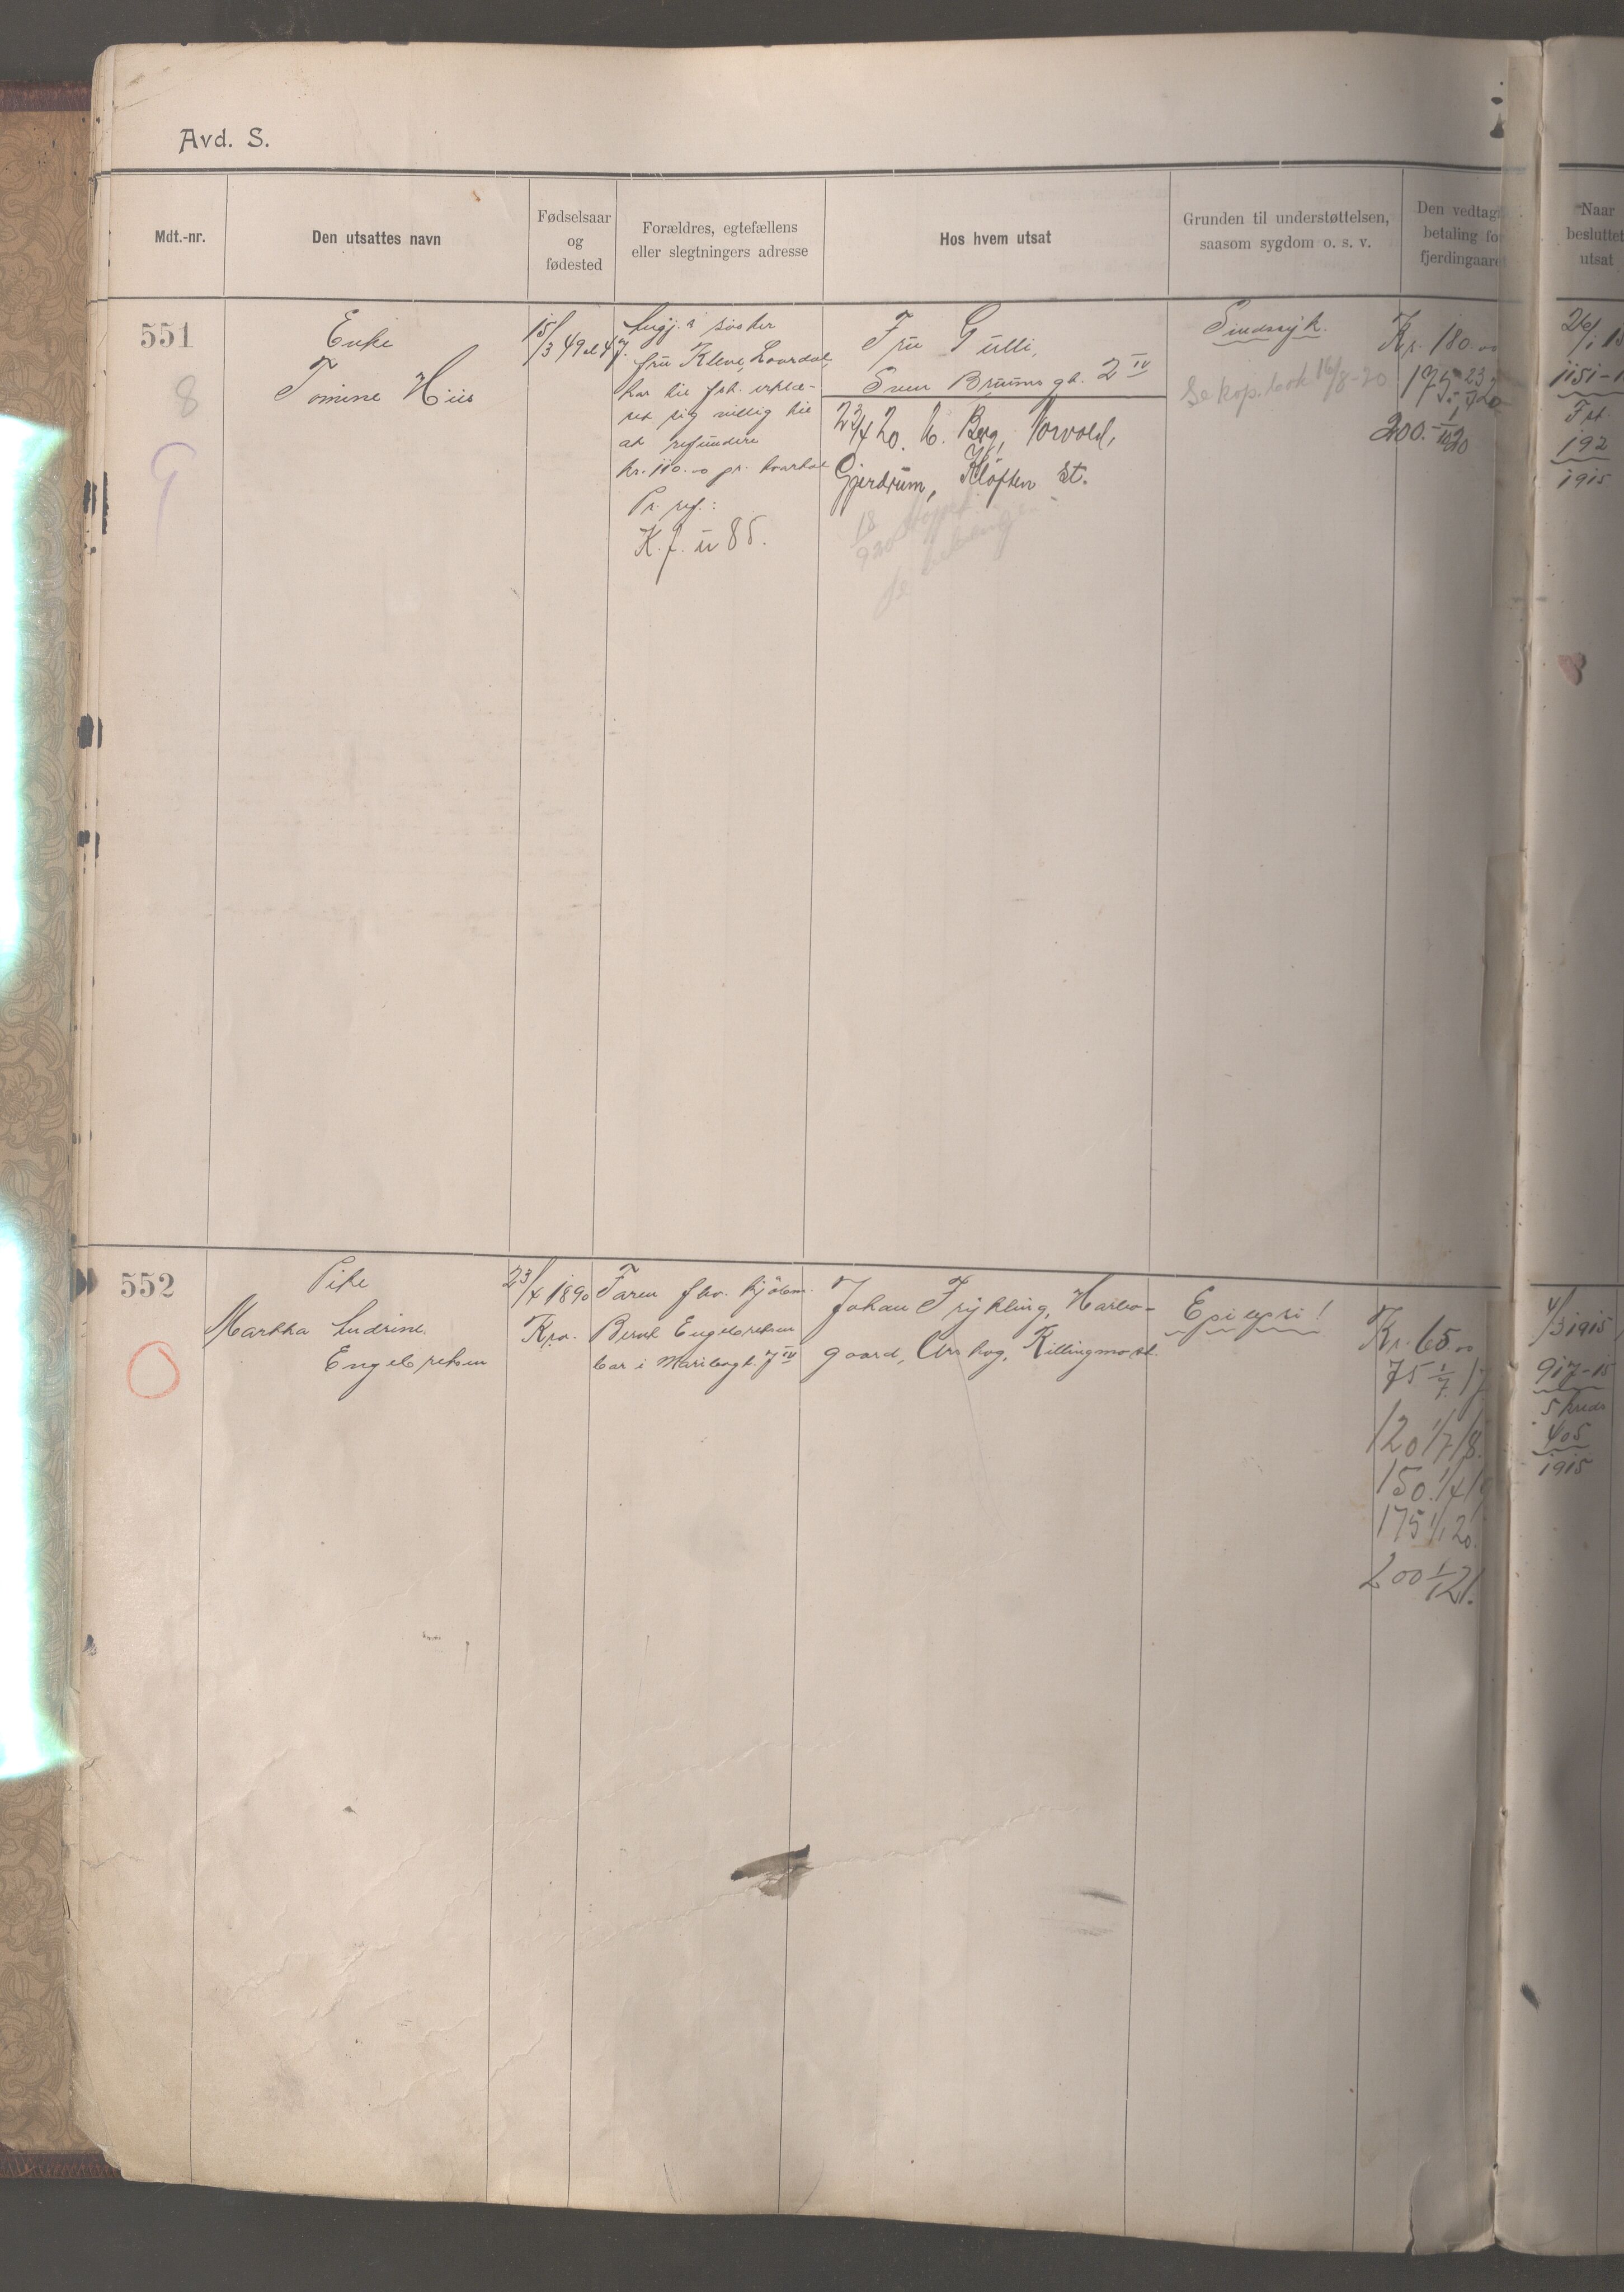 Avd. S.
Mdt.-nr.
Den utsattes navn
Fødselsaar
og
fødested
Forældres, egtefællens
eller slegtningers adresse
Hos hvem utsat
Grunden til understøttelsen,
saasom sygdom o. s. v.
Den vedtag
betaling fo
fjerdingaare
Naar
besluttet
utsat
551
8
Enke
Tomine Hiis
15/3 49 el 47.
søster
fru Kleve,
har til fsk. erklæ-
ret sig villig til
at refundere
kr. 110.00 pr. kvartal
Pr. ref.:
K. f. u 85.
Fru Gulli,
Sven Bruuns gt. 2 IV
23/4 20. Berg, Norvold,
Gjerdrum, Kløften st.
18
920
Sindssyk.
Se kop. bok 16/8-20
Kr. 180.00
175
200.
26/1 15
1151-1
Fst
192
1915
552
Pike
Martha Ludrine
Engebretsen
23/4 1890
Kra.
Faren fhv. kjørem.
Bernt Engebretsen
bor i Mariboegt. 7 IV
Johan Frykling, Harbo-
gaard, Aurskog, Killingmo st.
Epilepsi!
Kr. 65.00
75 1/7 17
120 1/7 18.
150. 1/4 19
175 1/1 20.
200 1/1 21.
4/3 1915
917-15
5 kreds
405
1915